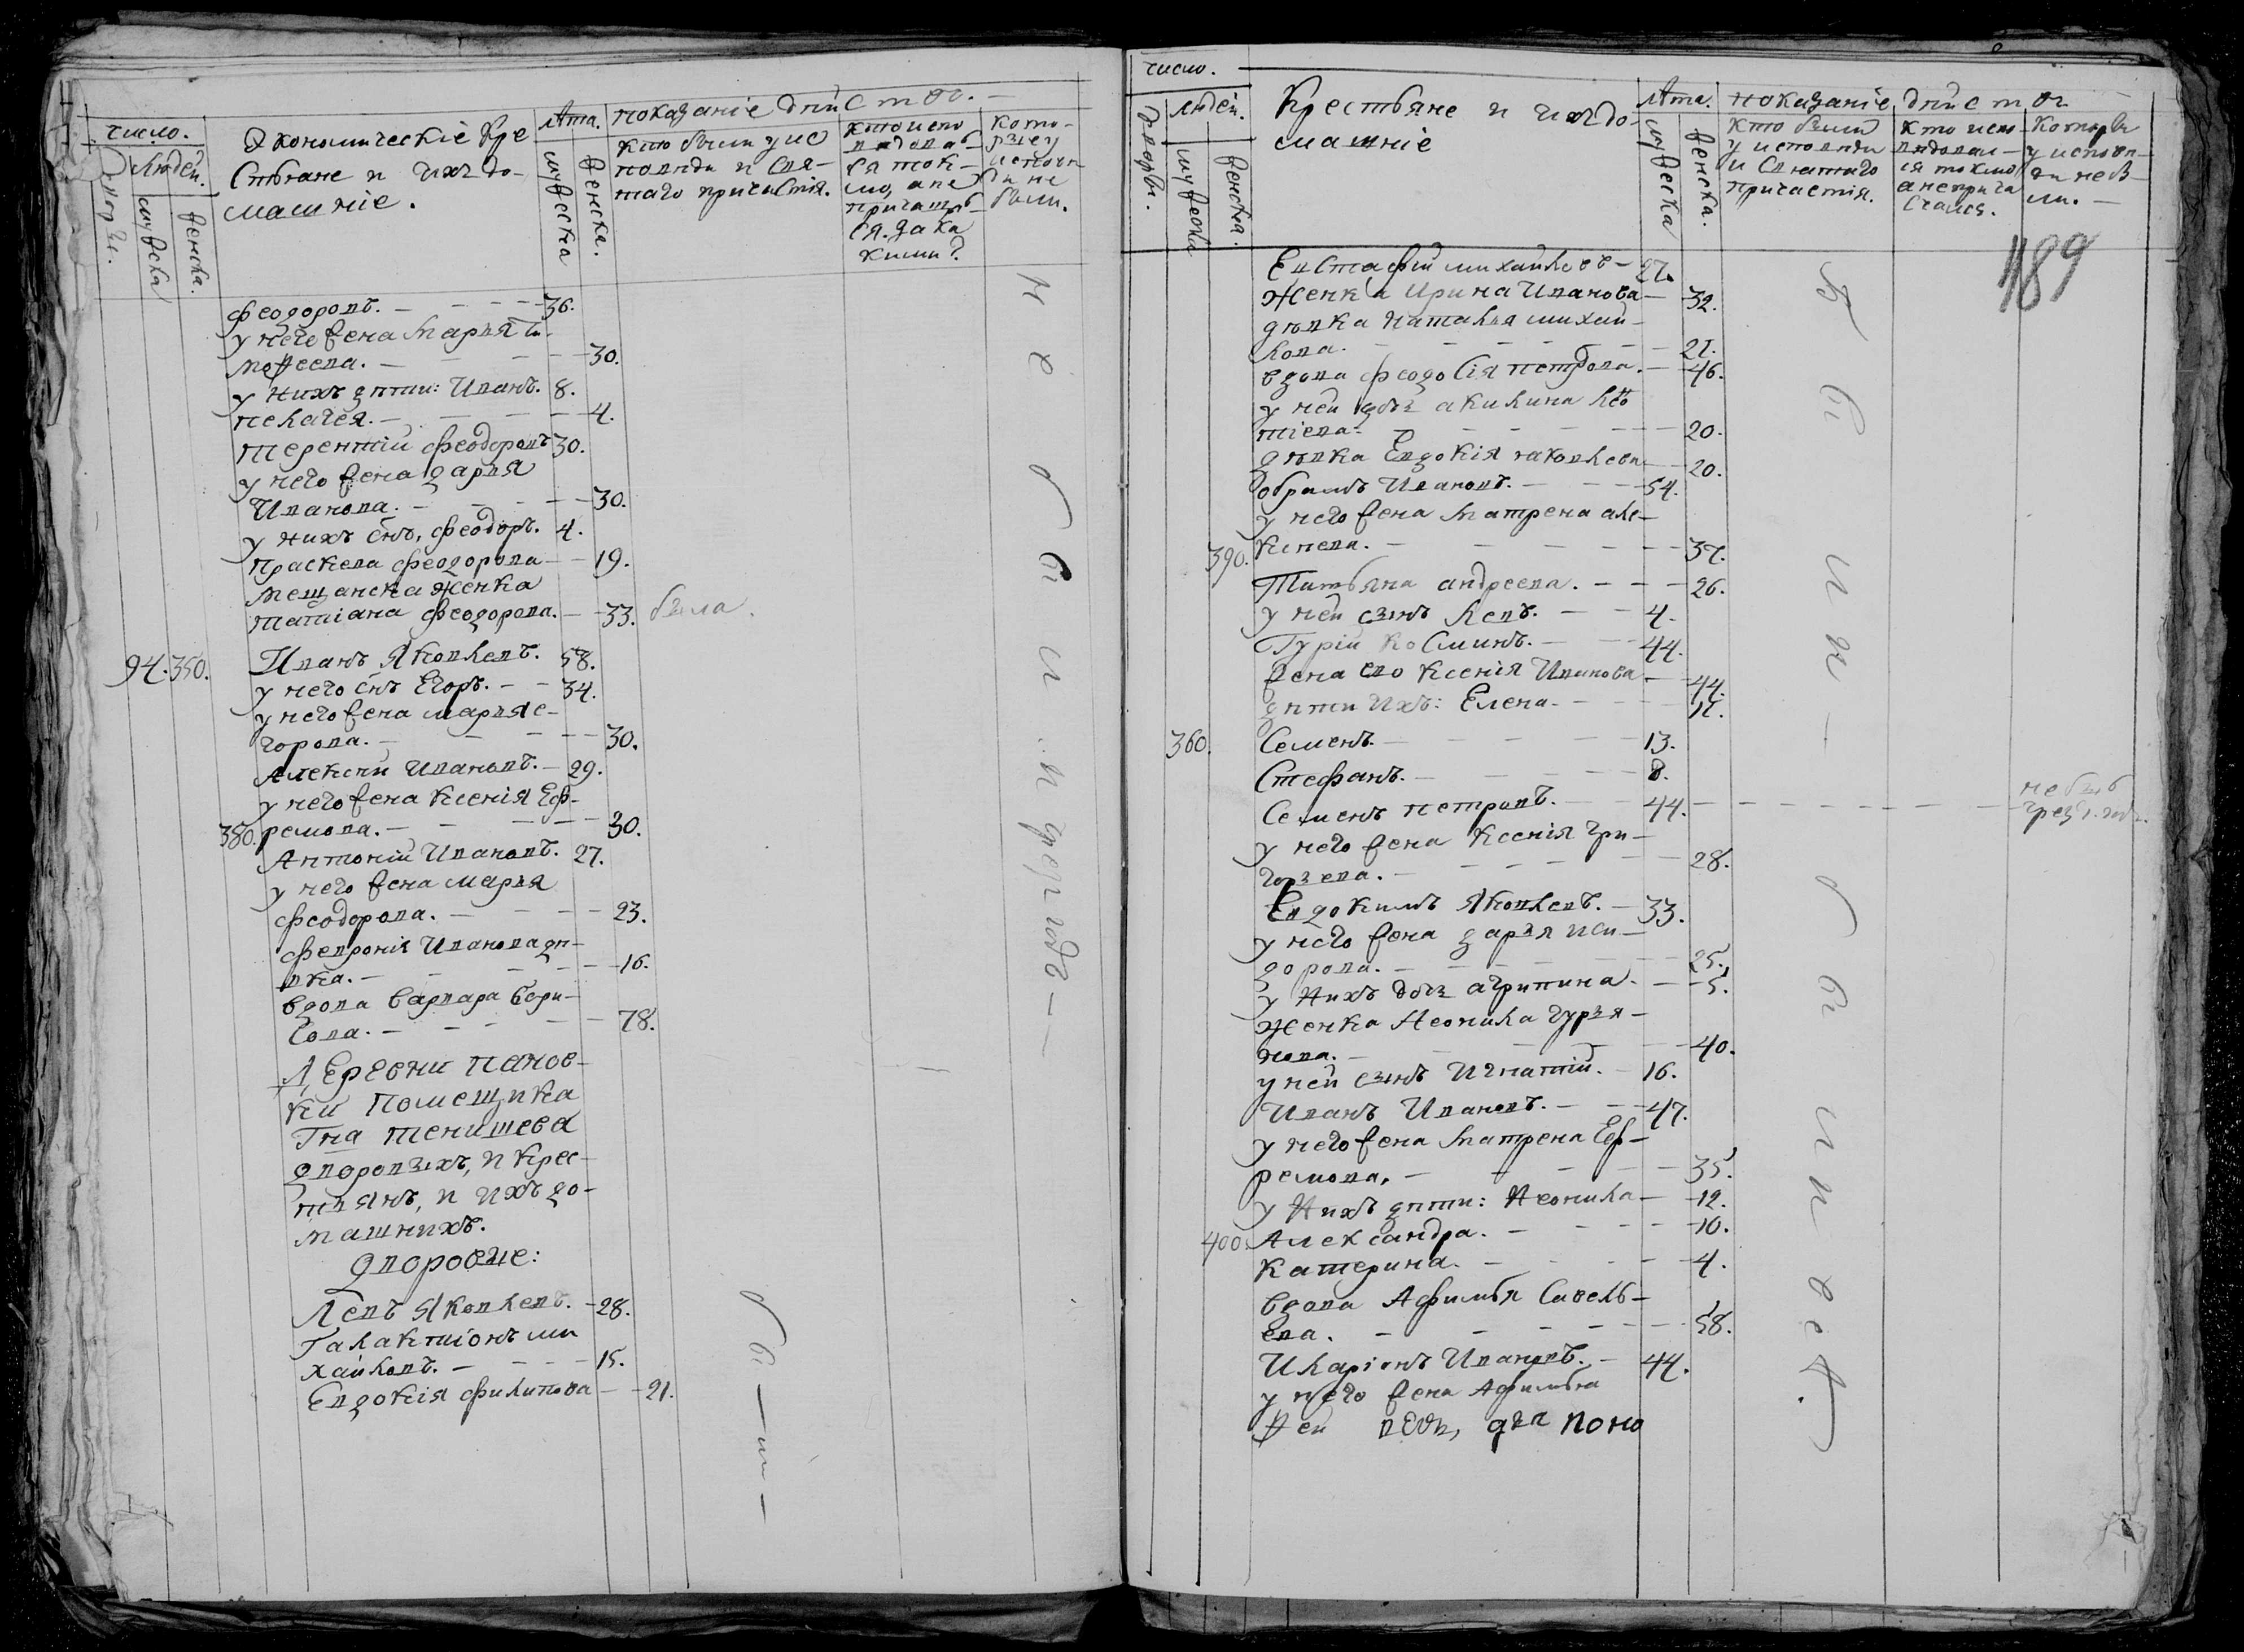 число.
людей.
дворы.
мужеска
женска.
Экономическіе кре
стьяне и ихъ до-
машніе.
лѣта.
мужеска
женска.
показаніе дѣйства. —
кто были у ис
повѣди и свя-
таго причастія.
кто испо
вѣдовав
ся токъ-
мо, а не
причащ
ся. за ка
кими?
кото-
рые у
исповѣ
ди не
были.
Феодоровъ. — 36.
у него жена Марья Ти-
мофеева. — 30.
у нихъ дѣти: Иванъ. 8.
Пелагея. — 4.
Терентій Феодоровъ 30.
у него жена Дарья
Иванова. — 30.
у нихъ снъ, Феодоръ. 4.
Праскева Феодорова — 19.
Мещанска женка
Татіана Феодорова. — 33. была.
94. 350. Иванъ Яковлевъ. 58.
у него снъ Егоръ. — 34.
у него жена Марья е-
горова. — 30.
Алексѣй Ивановъ. — 29.
у него жена Ксенія Еф-
380. ремова. — 30.
Антоній Ивановъ. 27.
у него жена Марья
Феодорова. — 23.
Февронія Иванова дѣ-
вка. — 16.
вдова Варвара Бори-
сова. — 78.
Деревни Панов-
ки Помещика
Гна Тенишева
дворовыхъ, и крес-
тьянъ, и ихъ до-
машнихъ.
дворовые:
Левъ Яковлевъ. — 28.
Галактіонъ Ми
хайловъ. — 15.
Евдокія Филипова — 21.
не были
бы — ли —
число.
людей.
дворы.
мужеска
женска.
Крестьяне и ихъ до-
машніе
лѣта.
мужеска
женска.
показаніе дѣйства
кто были
у исповѣди
и святаго
причастія.
кто испо
вѣдовал-
ся токмо
а не прича
стался.
которы
у исповѣ-
ди не бы-
ли. —
189
Евстафій Михайловъ — 27.
Женка Ирина Иванова — 32.
дѣвка Наталья Михай-
лова. — 21.
вдова Феодосія Петрова. — 46.
у ней дочь Акилина Ле
тіева. — 20.
дѣвка Евдокія Яковлева — 20.
Обрамъ Ивановъ. — 54.
у него жена Матрена Але-
390. ксѣева. — 37.
Татьяна Андреева. — 26.
у ней сынъ Левъ. — 4.
Гурій Косминъ. — 44.
жена ево Ксенія Иванова — 44.
дѣти ихъ: Елена. — 17.
360. Семенъ. — 13.
Стефанъ. — 8.
Семенъ Петровъ. — 44. — не былъ
у него жена Ксенія Гри-
горьева. — 28.
Евдокимъ Яковлевъ. — 33.
у него жена Дарья Иси-
дорова. — 25.
у нихъ дочь Агрипина. — 5.
Женка Неонила Гурья-
нова. — 40.
у ней сынъ Игнатій. — 16.
Иванъ Ивановъ. — 47.
у него жена Матрена Еф-
ремова, — 35.
у нихъ дѣти: Неонила — 12.
400. Александра. — 10.
Катерина. — 4.
вдова Афимья Савель-
ева. — 58.
Иларіонъ Ивановъ. — 44.
у него жена Афимья
были — были всѣ.